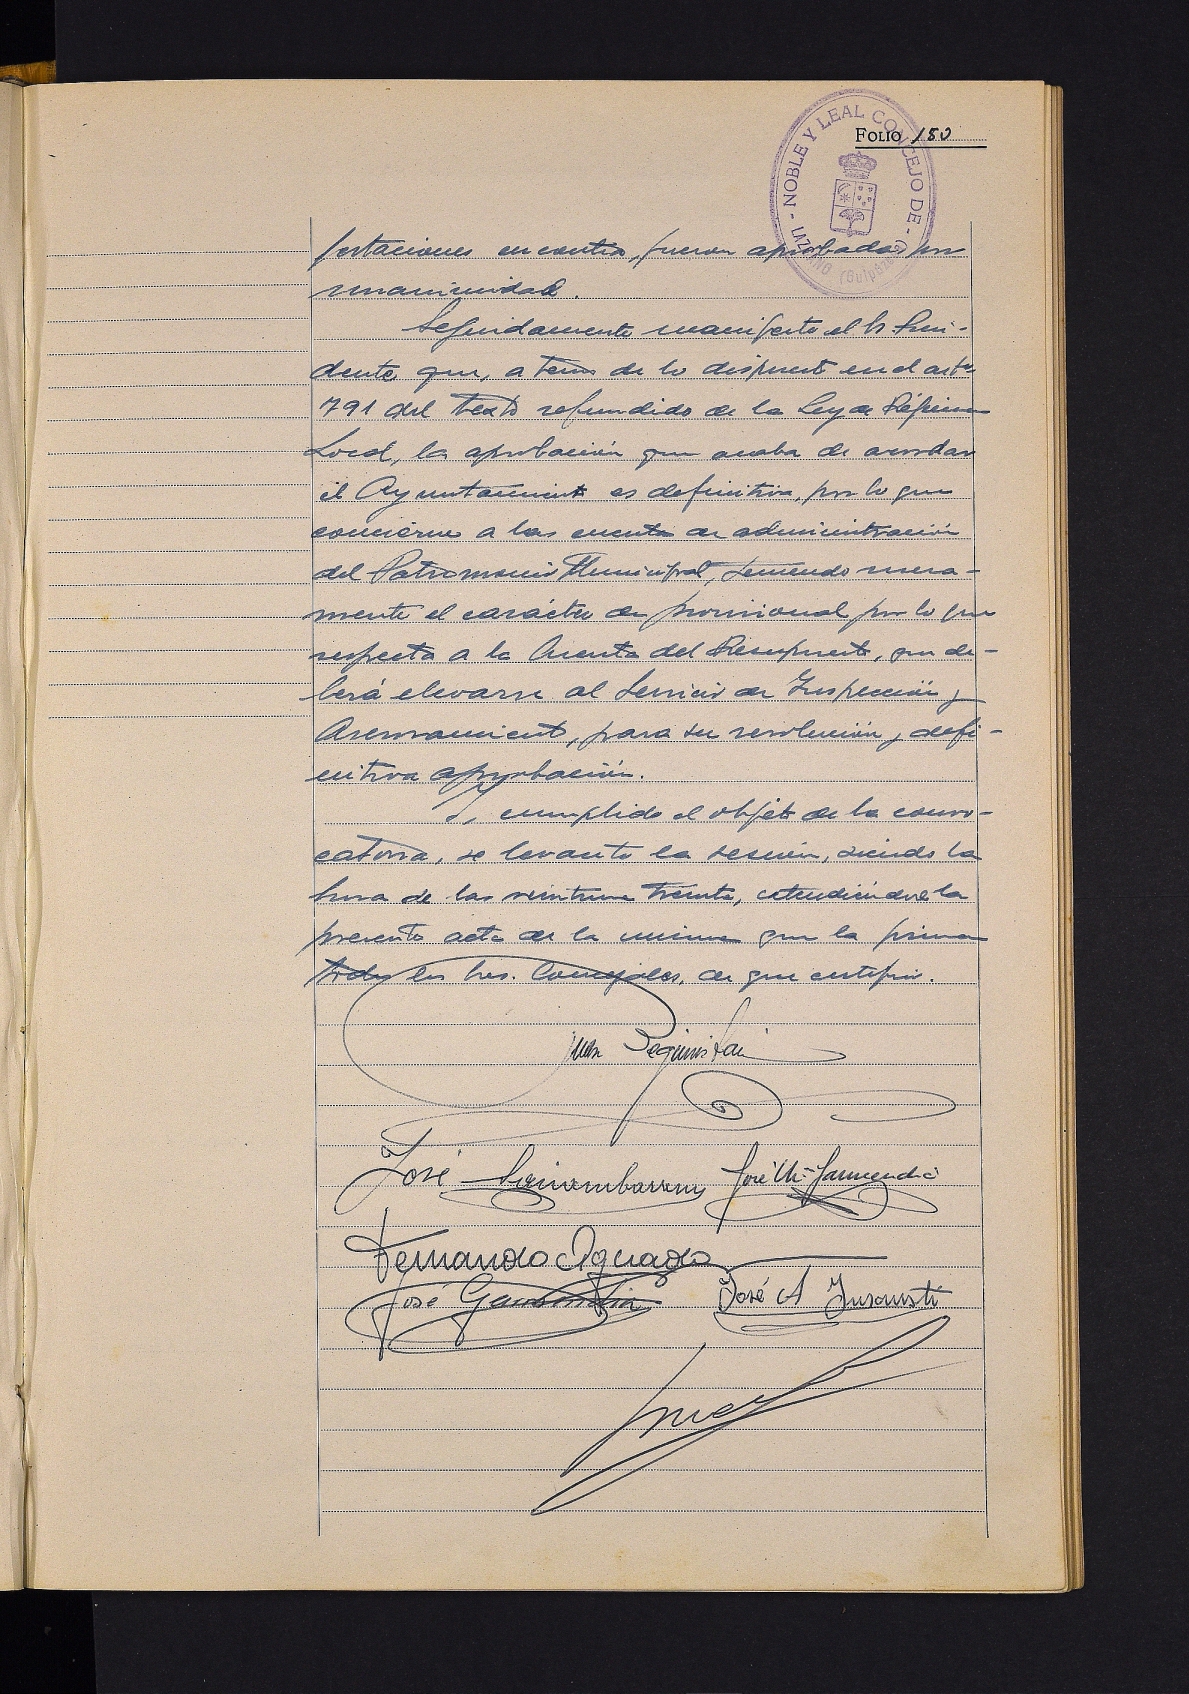 FOLIO 150
NOBLE Y LEAL CONCEJO DE
LAZCANO (Guipúzcoa)
festaciones en contra, fueron aprobadas por
unanimidad.
Seguidamente manifestó el Sr. Presi-
dente que, a tenor de lo dispuesto en el artº
791 del texto refundido de la Ley de Régimen
Local, la aprobación que acaba de acordar
el Ayuntamiento es definitiva, por lo que
concierne a las cuentas de administración
del Patrimonio Municipal, teniendo mera-
mente el carácter de provisional por lo que
respecta a la Cuenta del Presupuesto, que de-
berá elevarse al Servicio de Inspección y
Asesoramiento, para su resolución y defi-
nitiva aprobación.
Y, cumplido el objeto de la convo-
catoria, se levantó la sesión, siendo la
hora de las veintiuna treinta, extendiéndose la
presente acta de la misma que la firman
todos los Sres. Concejales, de que certifico.
Juan Beguiristain
José
José Mª Garmendia
Fernando Aguado
José Garmendia
José A Insausti